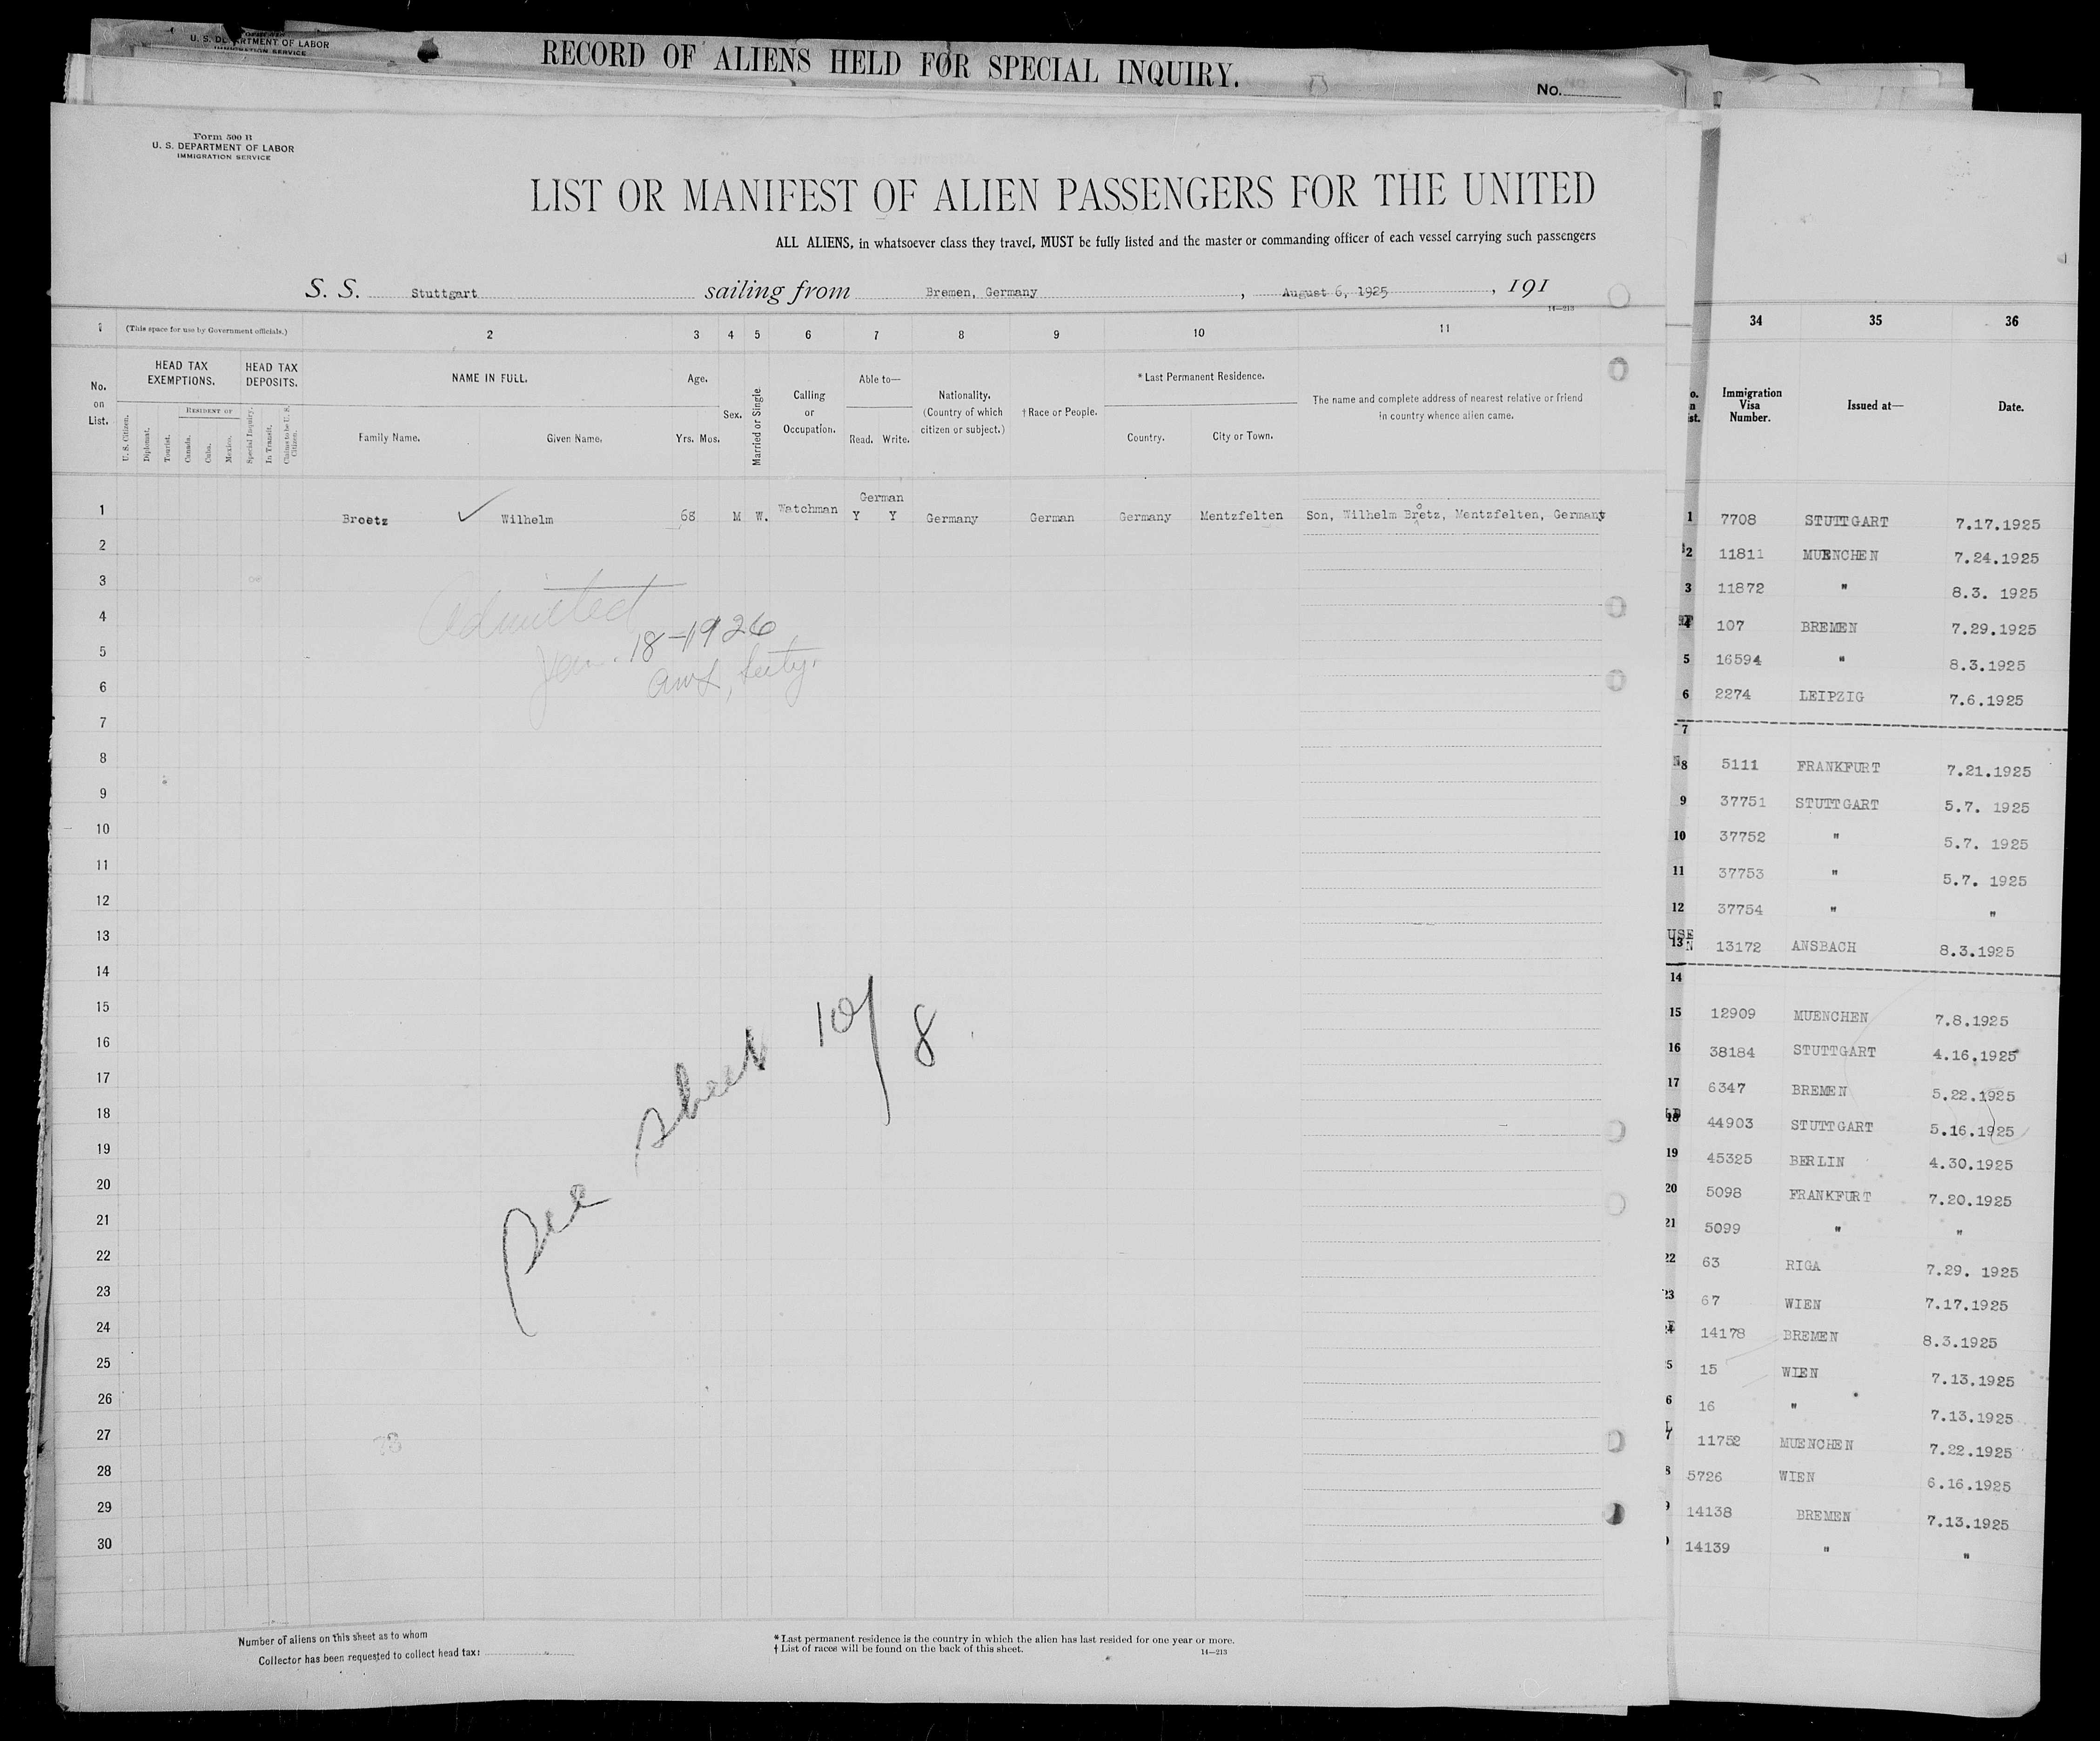 U. S. DEPARTMENT OF LABOR
IMMIGRATION SERVICE
RECORD OF ALIENS HELD FOR SPECIAL INQUIRY.
No.
Form 500 B
U. S. DEPARTMENT OF LABOR
IMMIGRATION SERVICE
LIST OR MANIFEST OF ALIEN PASSENGERS FOR THE UNITED
ALL ALIENS, in whatsoever class they travel, MUST be fully listed and the master or commanding officer of each vessel carrying such passengers
S. S. Stuttgart sailing from Bremen, Germany, August 6, 1925, 191
14—213
1 (This space for use by Government officials.) 2 3 4 5 6 7 8 9 10 11
No. on List.
HEAD TAX EXEMPTIONS.
HEAD TAX DEPOSITS.
U. S. Citizen. Diplomat. Tourist. RESIDENT OF Canada. Cuba. Mexico. Special Inquiry. In Transit. Claims to be U. S. Citizen.
NAME IN FULL.
Family Name. Given Name.
Age.
Yrs. Mos.
Sex.
Married or Single
Calling or Occupation.
Able to—
Read. Write.
Nationality. (Country of which citizen or subject.)
†Race or People.
*Last Permanent Residence.
Country. City or Town.
The name and complete address of nearest relative or friend in country whence alien came.
1 Broetz Wilhelm 68 M W. Watchman German Y Y Germany German Germany Mentzfelten Son, Wilhelm Bretz, Mentzfelten, Germany
2
3
4
5
6
7
8
9
10
11
12
13
14
15
16
17
18
19
20
21
22
23
24
25
26
27
28
29
30
Admitted
Jan. 18-1926
see sheet 10/8
73
Number of aliens on this sheet as to whom
Collector has been requested to collect head tax:
*Last permanent residence is the country in which the alien has last resided for one year or more.
†List of races will be found on the back of this sheet.
14—213
34 35 36
Immigration Visa Number. Issued at— Date.
1 7708 STUTTGART 7.17.1925
2 11811 MUENCHEN 7.24.1925
3 11872 " 8.3. 1925
4 107 BREMEN 7.29.1925
5 16594 " 8.3.1925
6 2274 LEIPZIG 7.6.1925
7
8 5111 FRANKFURT 7.21.1925
9 37751 STUTTGART 5.7. 1925
10 37752 " 5.7. 1925
11 37753 " 5.7. 1925
12 37754 " "
13 13172 ANSBACH 8.3.1925
14
15 12909 MUENCHEN 7.8.1925
16 38184 STUTTGART 4.16.1925
17 6347 BREMEN 5.22.1925
18 44903 STUTTGART 5.16.1925
19 45325 BERLIN 4.30.1925
20 5098 FRANKFURT 7.20.1925
21 5099 " "
22 63 RIGA 7.29. 1925
23 67 WIEN 7.17.1925
24 14178 BREMEN 8.3.1925
5 15 WIEN 7.13.1925
6 16 " 7.13.1925
7 11752 MUENCHEN 7.22.1925
8 5726 WIEN 6.16.1925
9 14138 BREMEN 7.13.1925
14139 " "